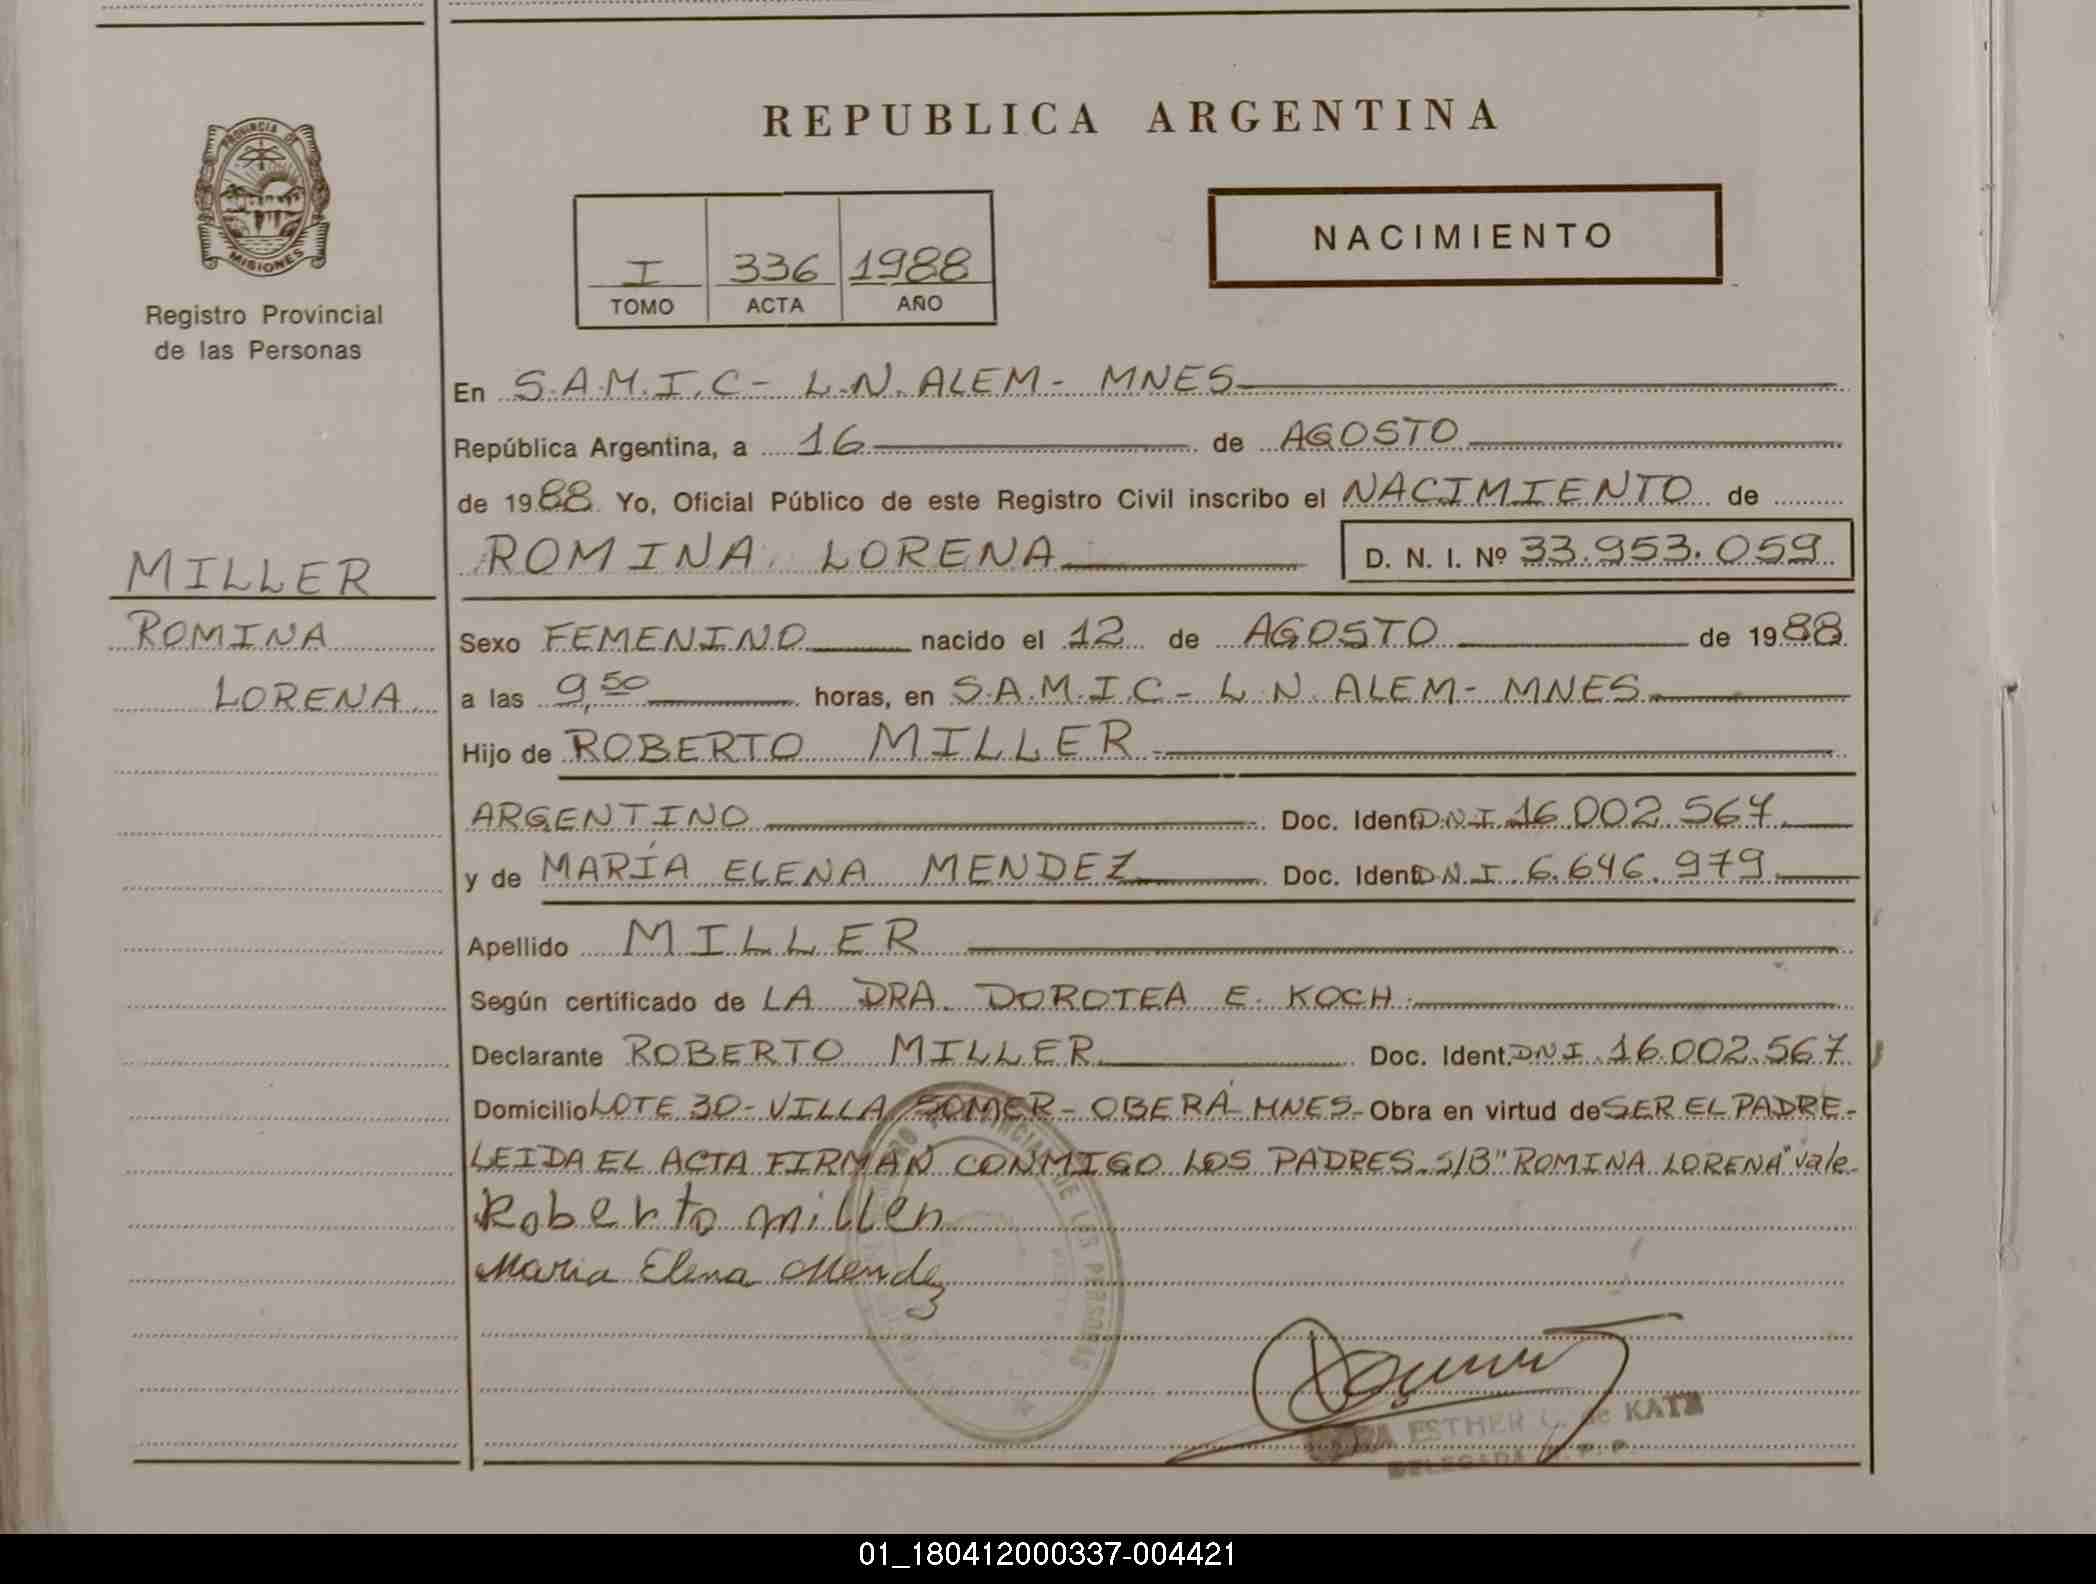 REPUBLICA ARGENTINA
PROVINCIA DE
MISIONES
Registro Provincial
de las Personas
I 336 1988
TOMO ACTA AÑO
NACIMIENTO
En S.A.M.I.C - L.N. ALEM - MNES
República Argentina, a 16 de AGOSTO
de 1988 Yo, Oficial Público de este Registro Civil inscribo el NACIMIENTO de
ROMINA LORENA D. N. I. Nº 33.953.059
MILLER
ROMINA
LORENA
Sexo FEMENINO nacido el 12 de AGOSTO de 1988
a las 9,50 horas, en S.A.M.I.C - L.N. ALEM - MNES
Hijo de ROBERTO MILLER
ARGENTINO Doc. Ident. D.N.I 16.002.567
y de MARÍA ELENA MENDEZ Doc. Ident. D.N.I 6.646.979
Apellido MILLER
Según certificado de LA DRA. DOROTEA E. KOCH
Declarante ROBERTO MILLER Doc. Ident. DNI 16.002.567
Domicilio LOTE 30 - VILLA SOMER - OBERÁ MNES - Obra en virtud de SER EL PADRE -
LEIDA EL ACTA FIRMAN CONMIGO LOS PADRES. S/B "ROMINA LORENA" Vale
Roberto Miller
Maria Elena Mendez
PROVINCIAL DE LAS PERSONAS
ESTHER C. de KATZ
DELEGADA
01_180412000337-004421